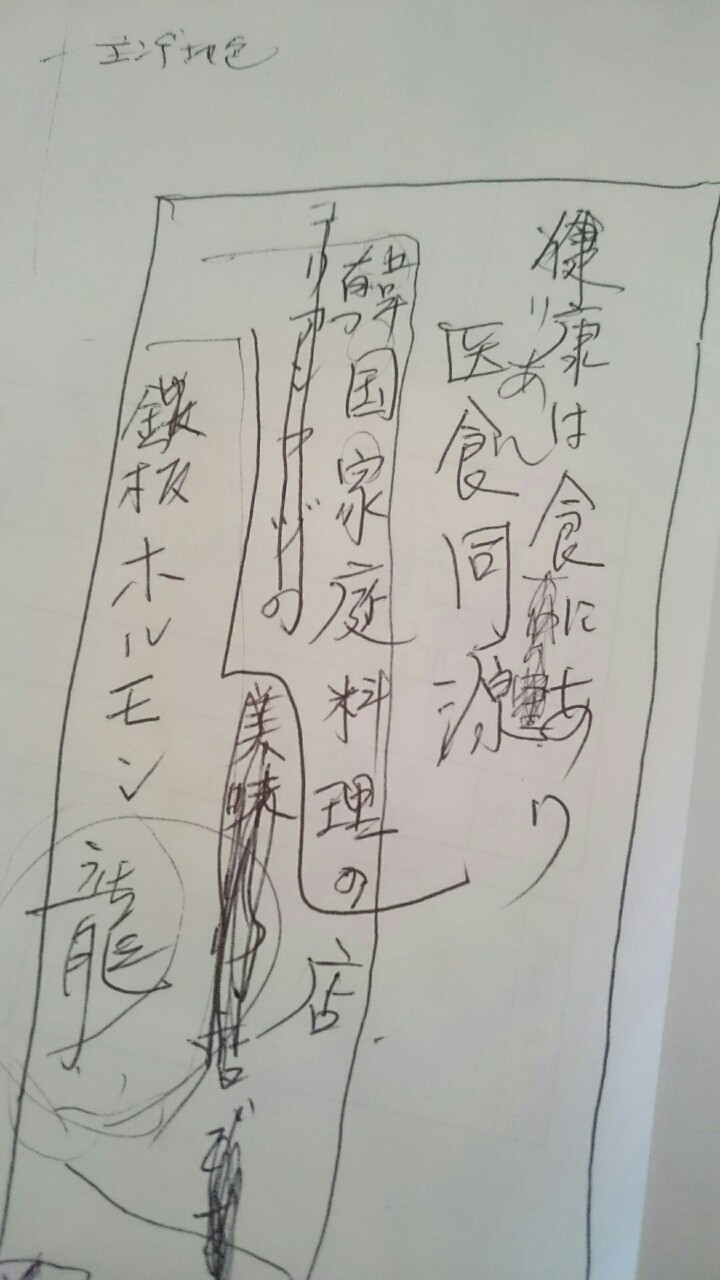 エンデ地色
健康は食にあり
医食同源
りあん
韓国家庭料理の店
コリアンアジの
美味
鉄板ホルモン
龍